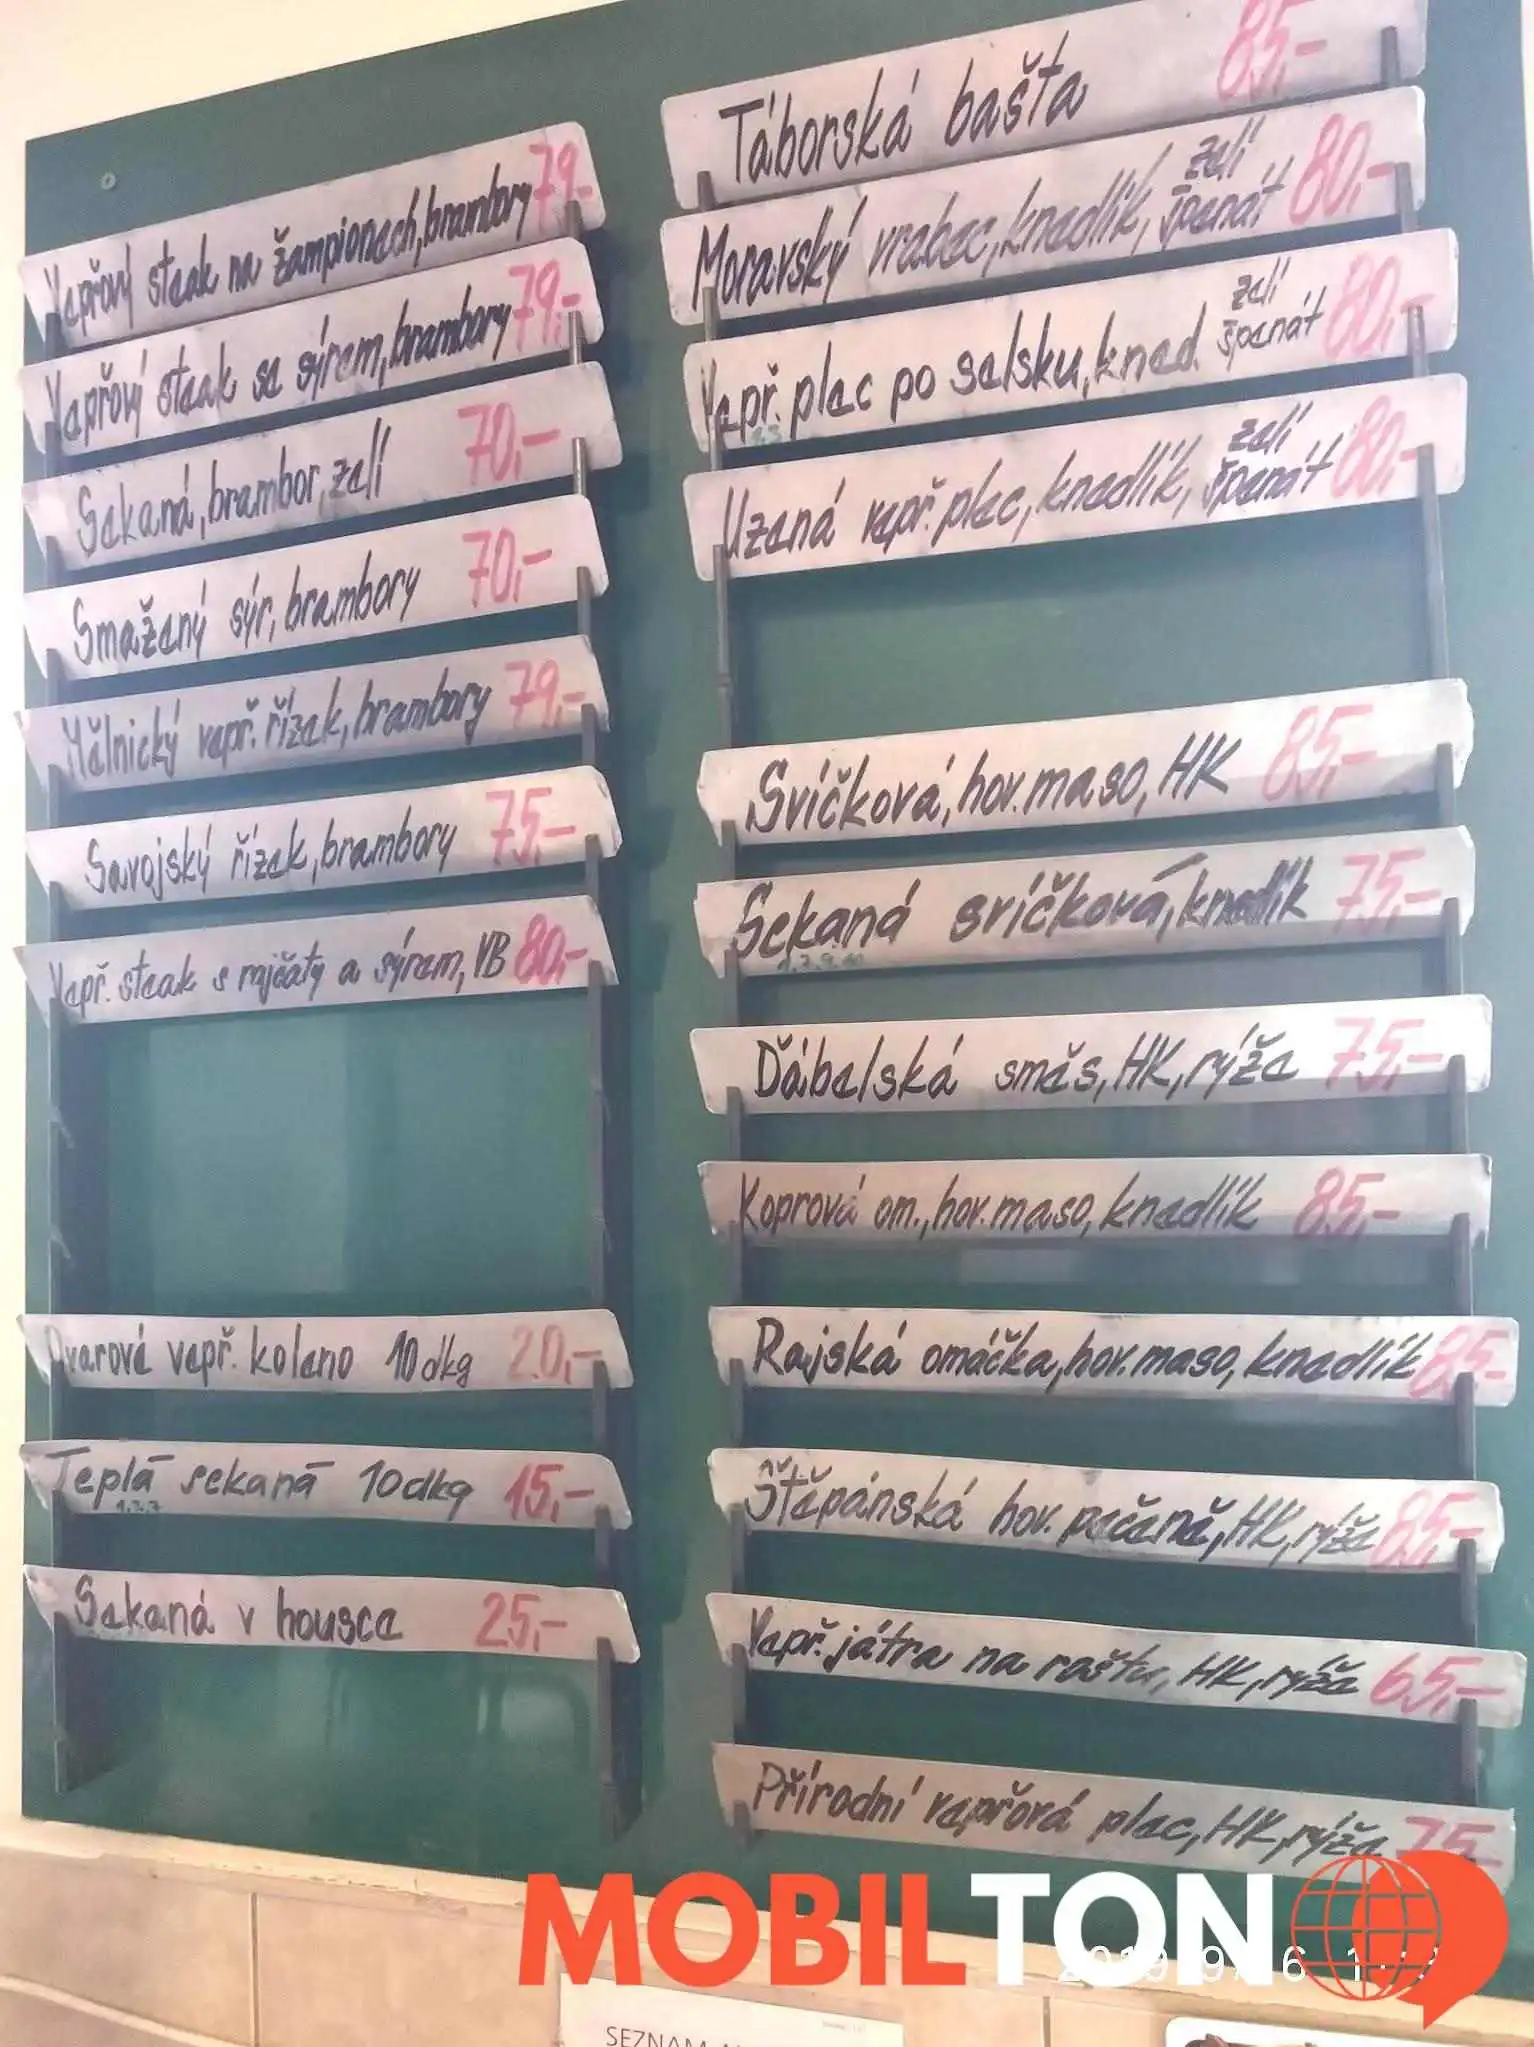 Vepřový steak na žampionech, brambory 79,-
Vepřový steak se sýrem, brambory 79,-
Sekaná, brambor, zelí 70,-
Smažený sýr, brambory 70,-
Mělnický vepř. řízek, brambory 79,-
Savojský řízek, brambory 75,-
Vepř. steak s rajčaty a sýrem, VB 80,-
Ovarové vepř. koleno 10 dkg 20,-
Teplá sekaná 10 dkg 15,-
1,3,7
Sekaná v housce 25,-
Táborská bašta 85,-
Moravský vrabec, knedlík, zelí špenát 80,-
Vepř. plec po selsku, kned. zelí špenát 80,-
Uzená vepř. plec, knedlík, zelí špenát 80,-
Svíčková, hov. maso, HK 85,-
Sekaná svíčková, knedlík 75,-
1,7,9,10
Ďábelská směs, HK, rýže 75,-
Koprová om., hov. maso, knedlík 85,-
Rajská omáčka, hov. maso, knedlík 85,-
Štěpánská hov. pečeně, HK, rýže 85,-
Vepř. játra na roštu, HK, rýže 65,-
Přírodní vepřová plec, HK, rýže 75
MOBILTON
SEZNAM